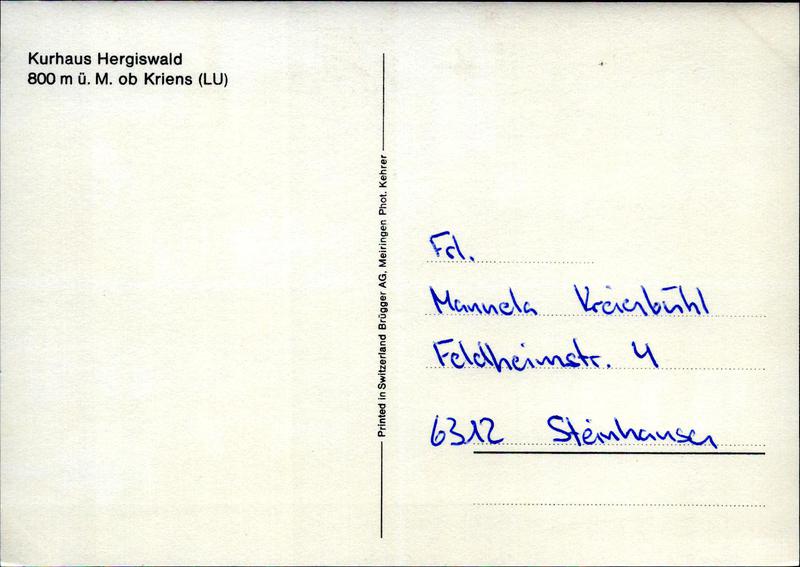 Kurhaus Hergiswald
800 m ü. M. ob Kriens (LU)
Printed in Switzerland Brügger AG, Meiringen Phot. Kehrer
Frl.
Manuela Kreienbühl
Feldheimstr. 4
6312 Steinhausen